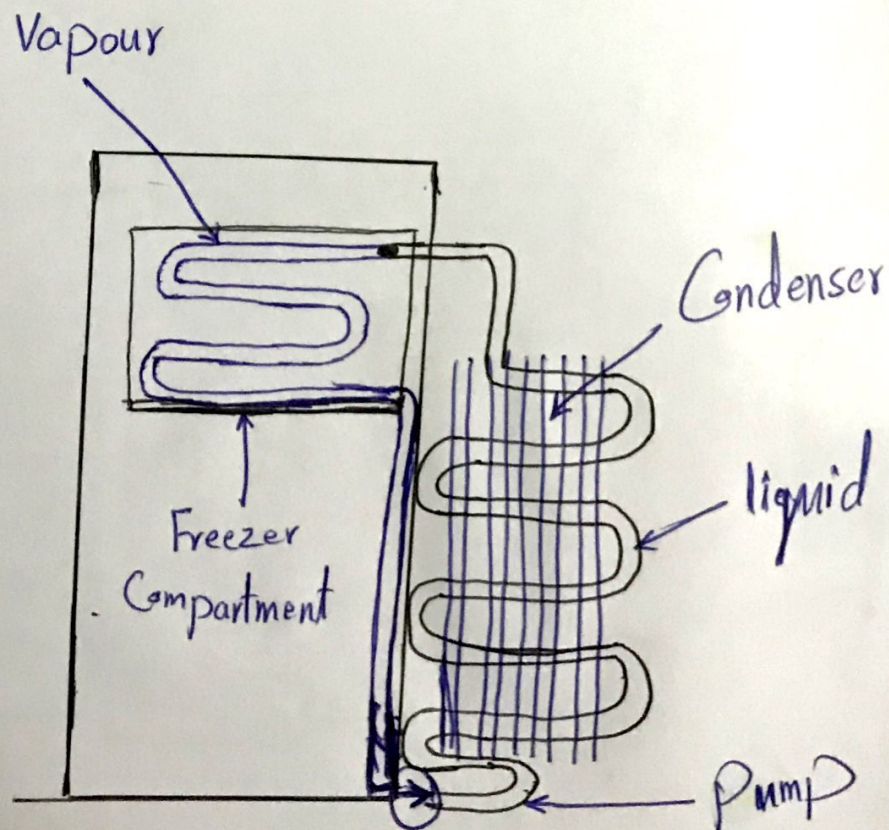 Vapour
Condenser
liquid
Freezer
Compartment
Pump